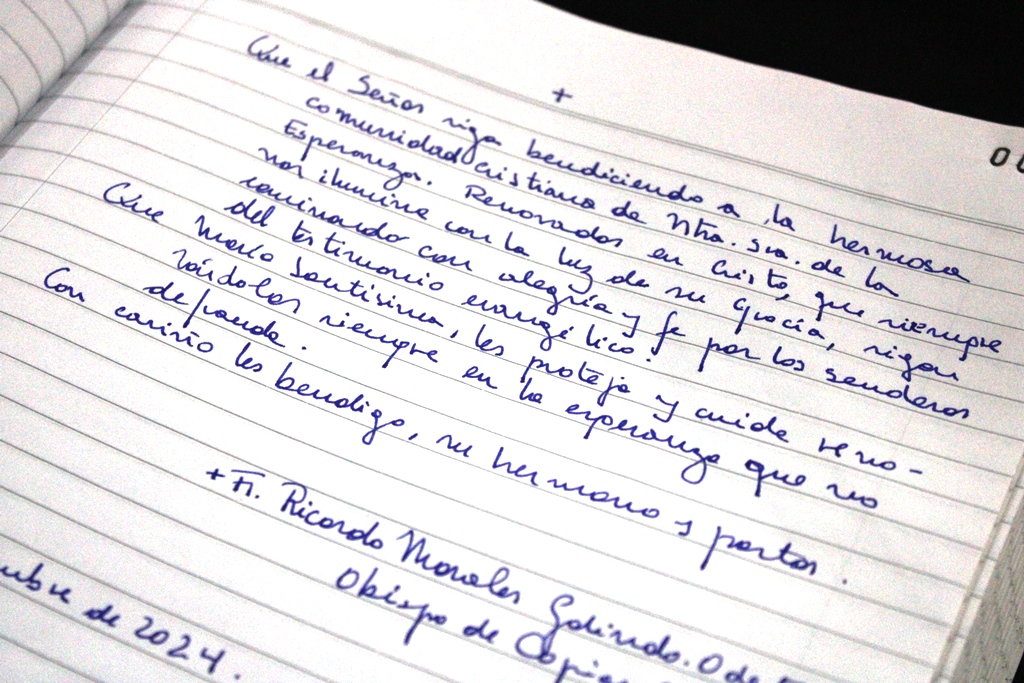 +
Que el Señor siga bendiciendo a la hermosa
comunidad Cristiana de Ntra. Sra. de la
Esperanza. Renovados en Cristo, que siempre
nos ilumine con la luz de su Gracia, sigan
caminando con alegría y fe por los senderos
del testimonio evangélico.
Que María Santísima, les proteja y cuide reno-
vándolos siempre en la esperanza que no
defrauda.
Con cariño les bendigo, su hermano y pastor.
+ Fr. Ricardo Morales Galindo. O de
Obispo de Copia
ubre de 2024.